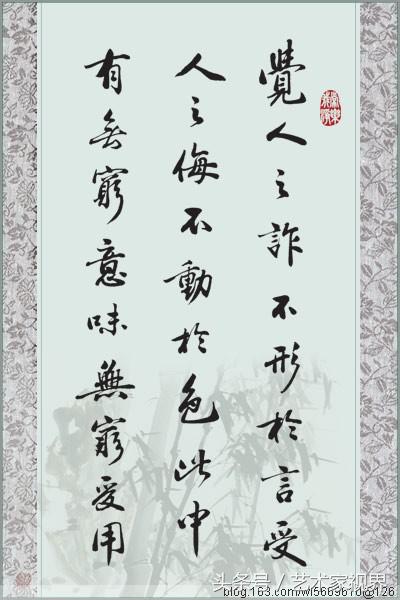 覺人之詐不形於言受
人之侮不動於色此中
有無窮意味無窮受用
头条号 / 艺术家视界